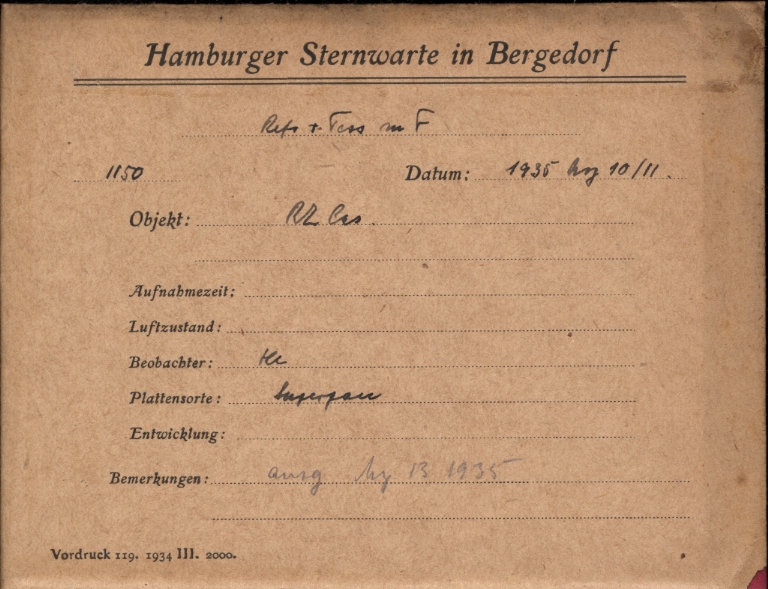 Hamburger Sternwarte in Bergedorf
Refr + Tess m F
1150 Datum: 1935 Aug 10/11.
Objekt: RZ Cas.
Aufnahmezeit:
Luftzustand:
Beobachter:
Plattensorte: Superpan
Entwicklung:
Bemerkungen: ausg Aug 13 1935
Vordruck 119. 1934 III. 2000.